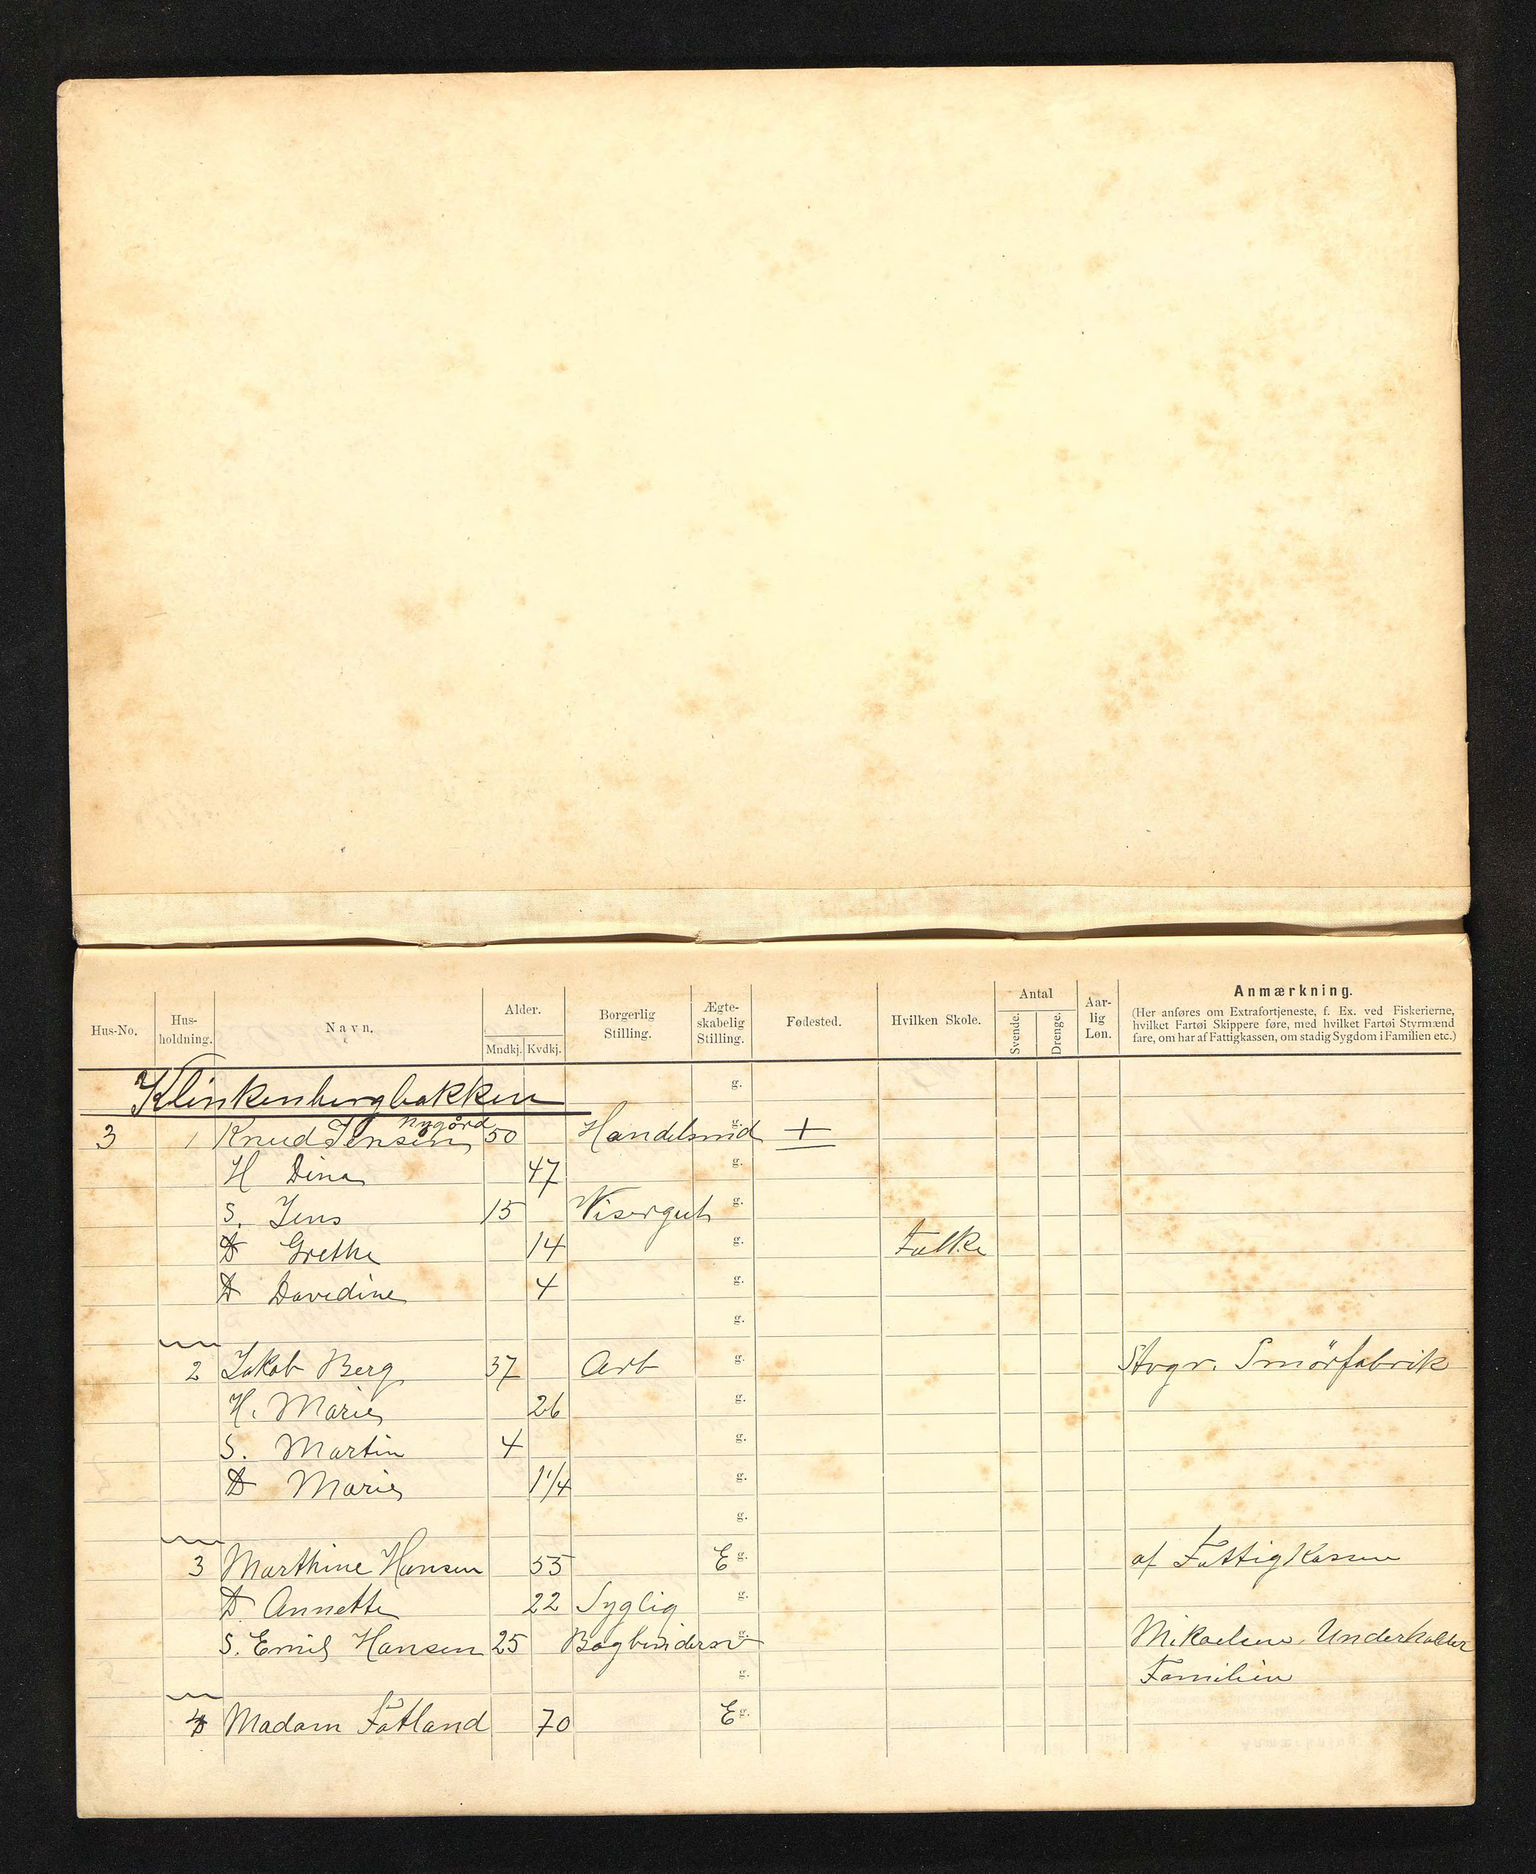 Hus-No. Hus-holdning. Navn. Alder. Mndkj. Kvdkj. Borgerlig Stilling. Ægte-skabelig Stilling. Fødested. Hvilken Skole. Antal Svende. Drenge. Aar-lig Løn. Anmærkning.
(Her anføres om Extrafortjeneste, f. Ex. ved Fiskerierne,
hvilket Fartøi Skippere føre, med hvilket Fartøi Styrmænd
fare, om har af Fattigkassen, om stadig Sygdom i Familien etc.)
Klinkenbergbakken g.
Nygård
3 1 Knud Jensen 50 Handelsmd g. +
H Dina 47 g.
S. Jens 15 Visergut g.
D Grethe 14 g. Folke
D Davidine 4 g.
g.
2 Jakob Berg 37 Arb g. Stvgr. Smörfabrik
H. Marie 26 g.
S. Martin 4 g.
D Marie 1 1/4 g.
g.
3 Marthine Hansen 55 E g. af Fattigkassen
D. Annette 22 Syglig g.
S. Emil Hansen 25 Bogbindersv g. Mikaelsen, Underholder
g. Familien
4 Madam Fatland 70 E g.